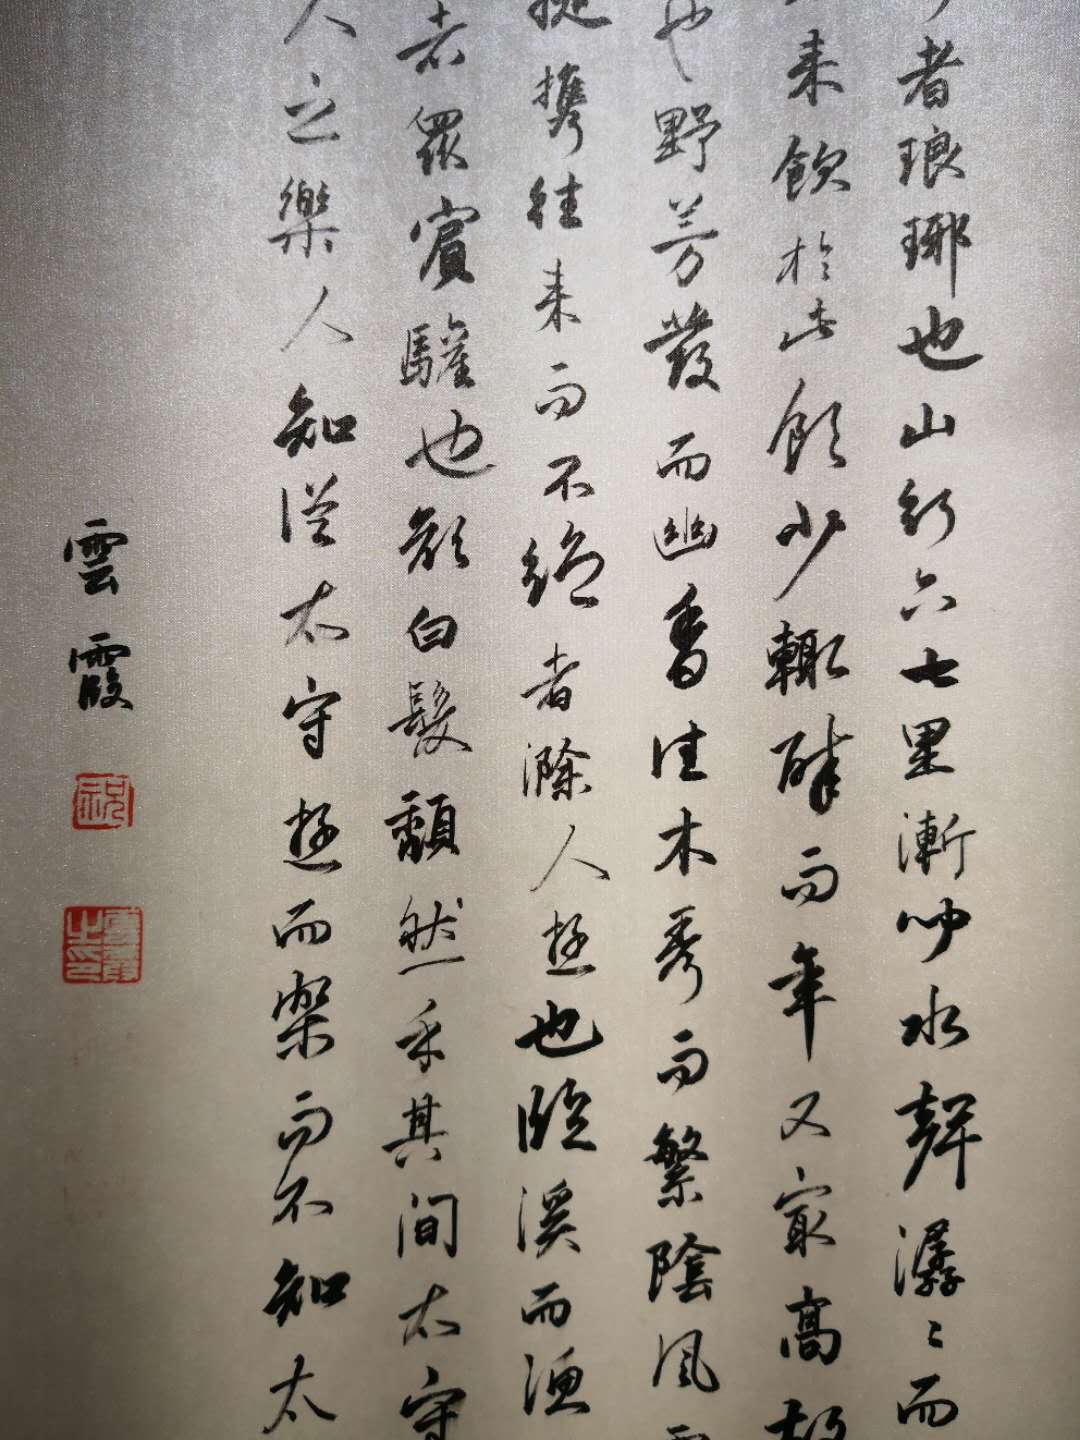 者瑯琊也山行六七里漸聞水聲潺〻而
来飲於此飲少輒醉而年又寂高故
也野芳發而幽香佳木秀而繁陰風
携往来而不絶者滁人遊也臨溪而漁
者衆賓驩也顏白髮頹然乎其間太守
人之樂人知從太守遊而樂而不知太
雲霞
祝
之印